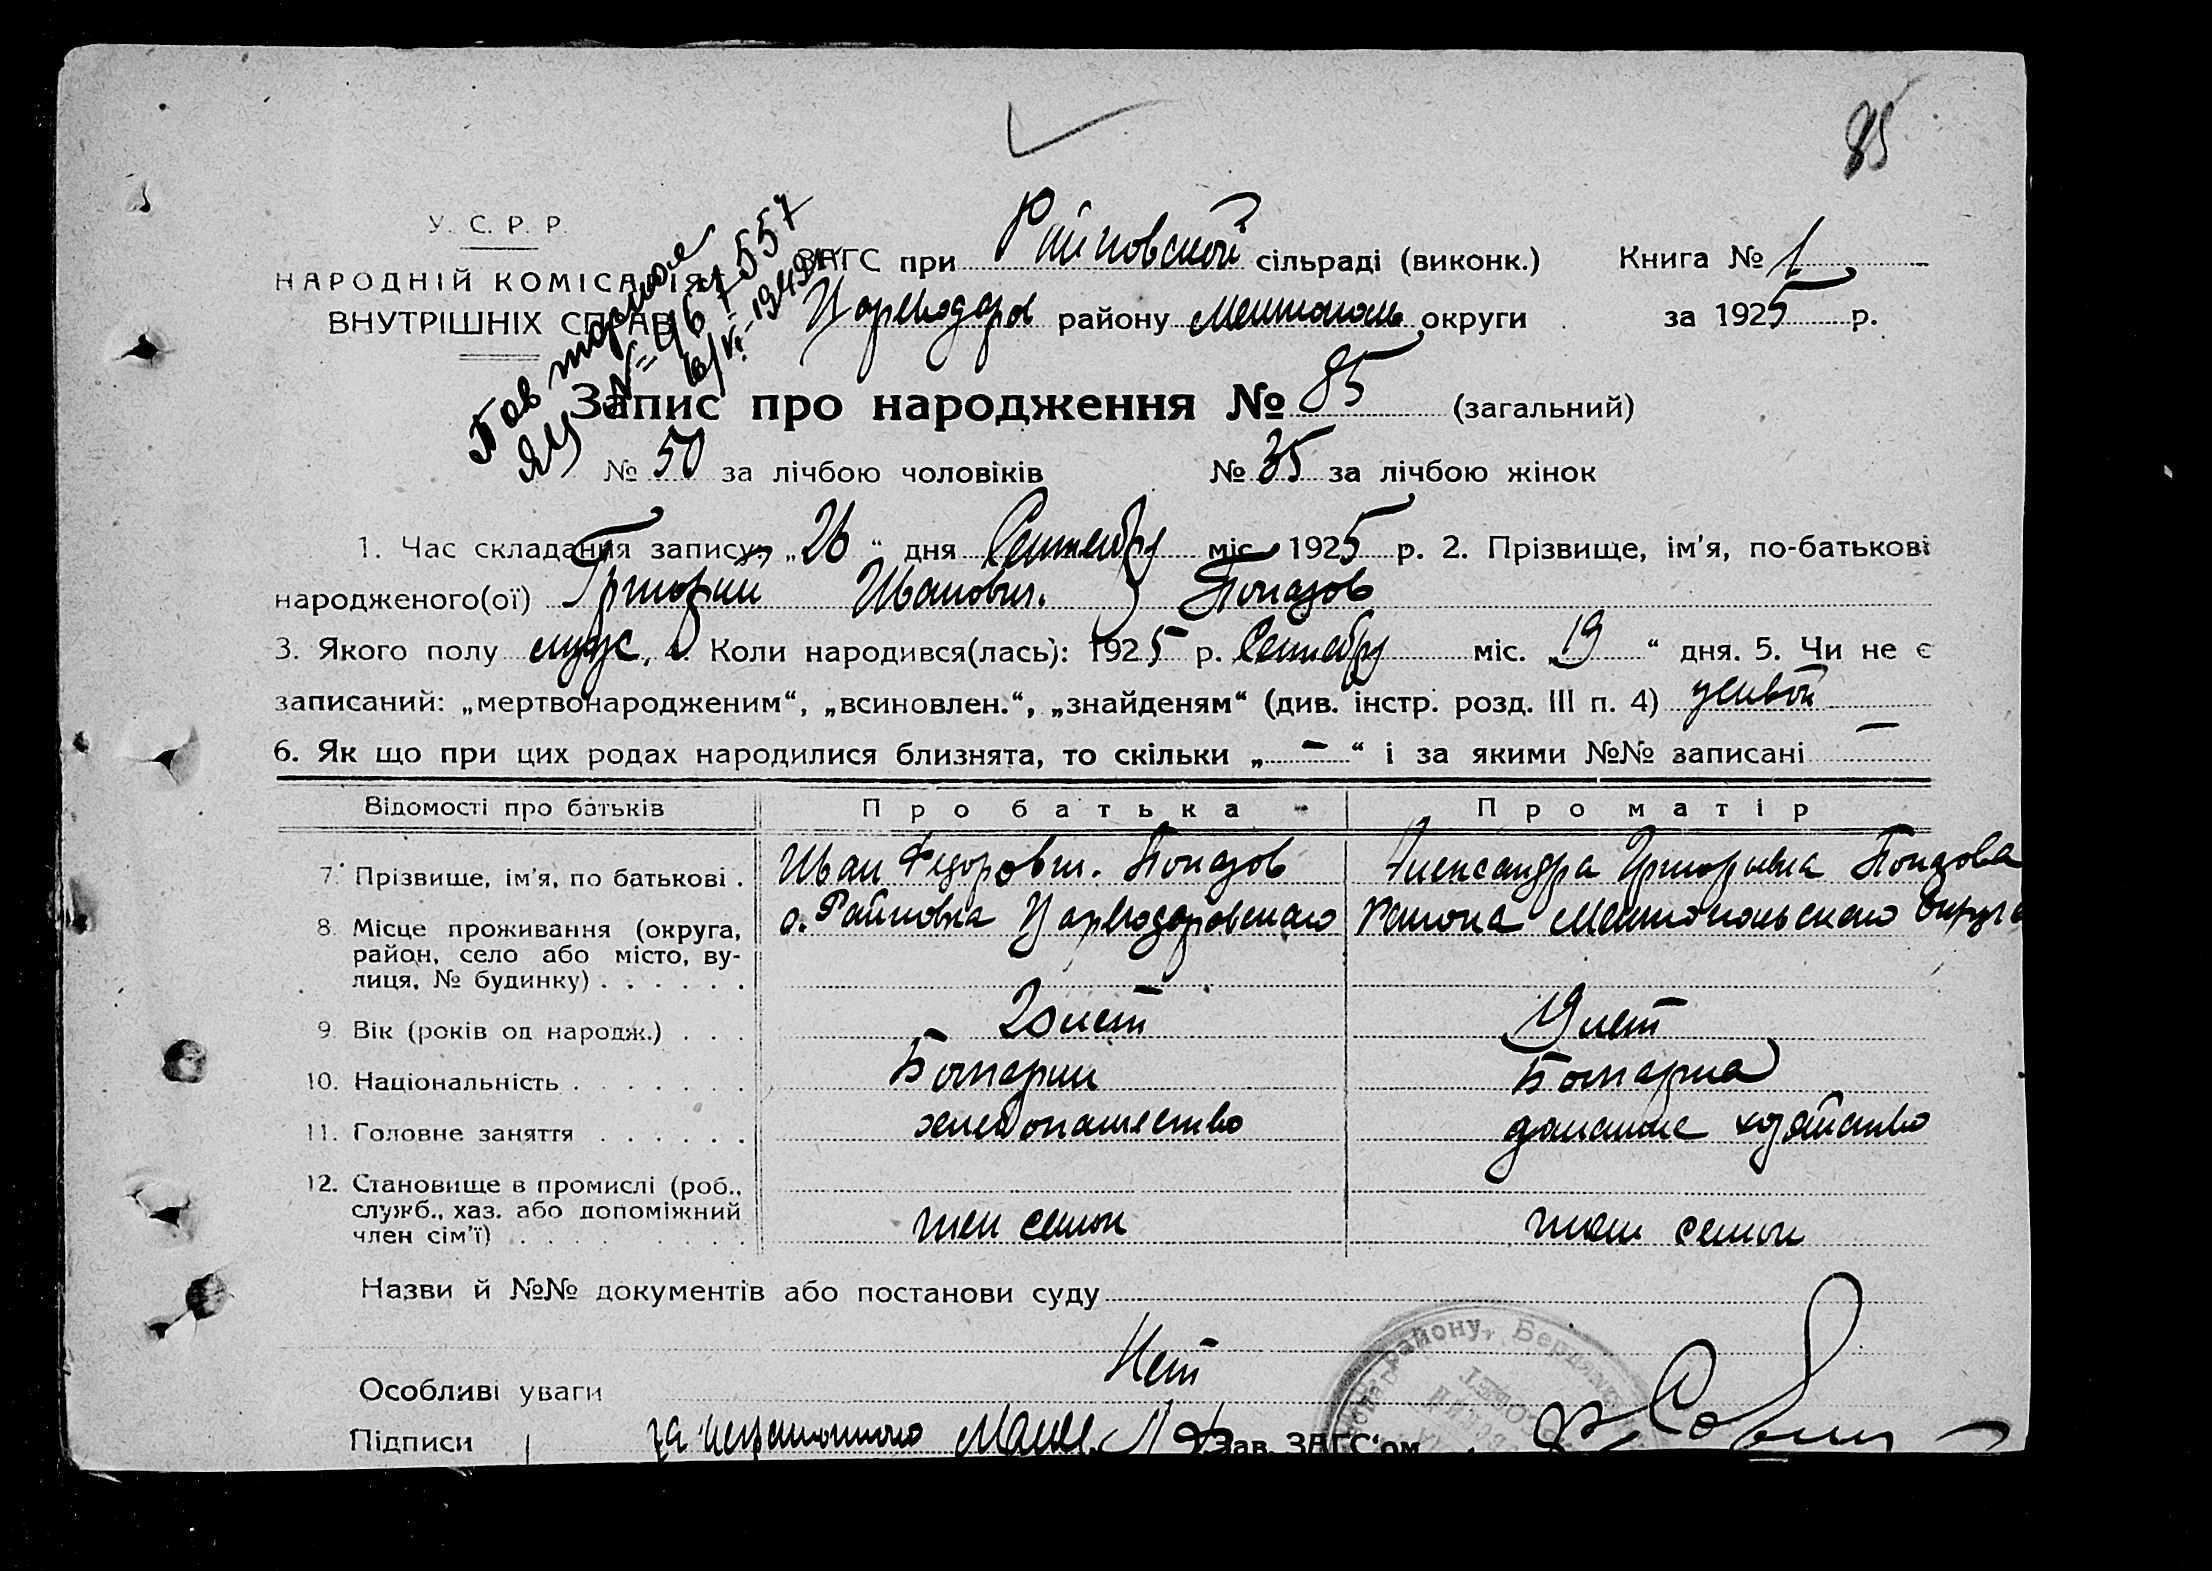 85
У. С. Р. Р.
НАРОДНІЙ КОМІСАРІЯТ
ВНУТРІШНІХ СПРАВ
Повторное
ЯЦ № 967557
ЗАГС при Райновской сільраді (виконк.) Книга № 1
Цареводар району Мелитополь округи за 1925 р.
Запис про народження № 85 (загальний)
№ 50 за лічбою чоловіків № 35 за лічбою жінок
1. Час складання запису: „26“ дня Сентября міс. 1925 р. 2. Прізвище, ім'я, по-батькові
народженого(ої) Григорий Иванович. Попазов
3. Якого полу мужс, 4. Коли народився(лась): 1925 р. Сентября міс. „19“ дня. 5. Чи не є
записаний: „мертвонародженим“, „всиновлен.“, „знайденям“ (див. інстр. розд. III п. 4) живой
6. Як що при цих родах народилися близнята, то скільки „ — “ і за якими №№ записані —
Відомості про батьків Про батька Про матір
7. Прізвище, ім'я, по батькові . Иван Федорович. Попазов Александра Григорьевна Попазова
8. Місце проживання (округа, район, село або місто, вулиця, № будинку) . . . . . . с. Райновка Цареводаровского Района Мелитопольского Округа
9. Вік (років од народж.) . . . 20 лет 19 лет
10. Національність . . . . . . . Болгарин Болгарка
11. Головне заняття . . . . . . хлебопашество домашнее хозяйство
12. Становище в промислі (роб., служб., хаз. або допоміжний член сім'ї) . . . . . . . . . член семьи член семьи
Назви й №№ документів або постанови суду
Особливі уваги Нет
Підписи за неграмотного Зав. ЗАГС'ом
району, Бердянс